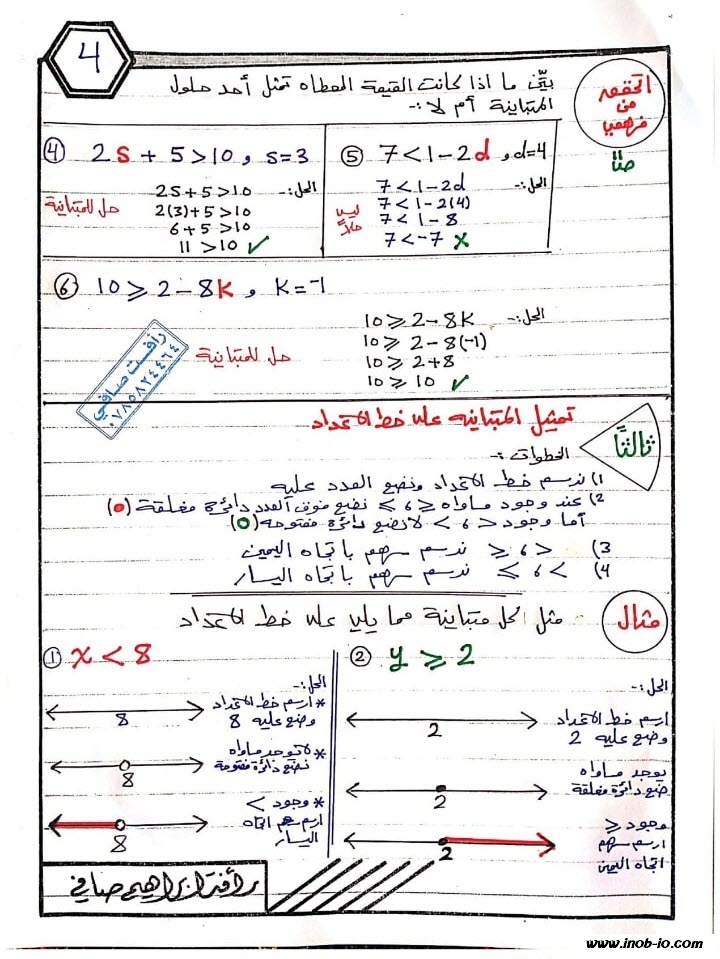 4
أتحقق
من
فهمي
بيّن ما اذا كانت القيمة المعطاه تمثل أحد حلول
المتباينة أم لا :-
④ 2s + 5 > 10 , s = 3
الحل :-
2s + 5 > 10
2(3) + 5 > 10
6 + 5 > 10
11 > 10 ✓
حل للمتباينة
⑤ 7 < 1 - 2d , d=4
الحل :-
7 < 1 - 2d
7 < 1 - 2(4)
7 < 1 - 8
7 < -7 ✗
ليس
حلاً
⑥ 10 ⩾ 2 - 8k , k = -1
الحل :-
10 ⩾ 2 - 8k
10 ⩾ 2 - 8(-1)
10 ⩾ 2 + 8
10 ⩾ 10 ✓
حل للمتباينة
رأفت صافي
٠٧٨٥٨٢٤٤٦٤
ثالثاً
تمثيل المتباينه على خط الاعداد
الخطوات :-
1) نرسم خط الاعداد ونضع العدد عليه
2) عند وجود مساواه ⩾ ، ⩽ نضع فوق العدد دائرة مغلقة (●)
أما وجود > ، < نضع دائرة مفتوحه (○)
3) > ، ⩾ نرسم سهم باتجاه اليمين
4) < ، ⩽ نرسم سهم باتجاه اليسار
مثال
مثل كل متباينة مما يلي على خط الاعداد
① x < 8
الحل :-
* ارسم خط الاعداد
وضع عليه 8
8
* لا توجد مساواه
نضع دائرة مفتوحة
8
* وجود <
ارسم سهم اتجاه
اليسار
8
② y ⩾ 2
الحل :-
ارسم خط الاعداد
وضع عليه 2
2
يوجد مساواه
ضع دائرة مغلقة
2
وجود ⩾
ارسم سهم
اتجاه اليمين
2
رأفت ابراهيم صافي
www.inob-io.com